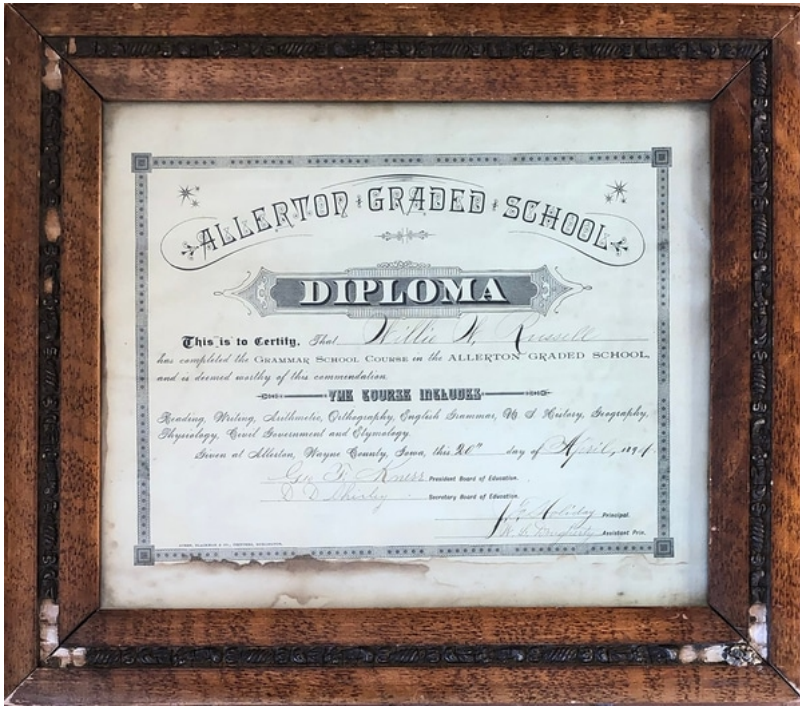 ALLERTON GRADED SCHOOL
DIPLOMA
This is to Certify, That Willie W. Russell
has completed the GRAMMAR SCHOOL COURSE in the ALLERTON GRADED SCHOOL,
and is deemed worthy of this commendation.
THE COURSE INCLUDES
Reading, Writing, Arithmetic, Orthography, English Grammar, U. S. History, Geography,
Physiology, Civil Government and Etymology.
Given at Allerton, Wayne County, Iowa, this 20th day of April, 1894.
Geo. F. President Board of Education.
D. D. Shirley Secretary Board of Education.
Holiday Principal.
Assistant Prin.